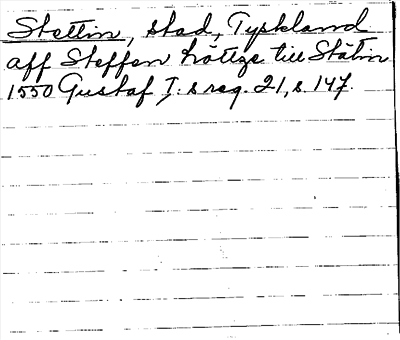 Stettin, stad, Tyskland
aff Steffen Lötize till Stätin
1550 Gustaf I. s reg. 21, s. 147.